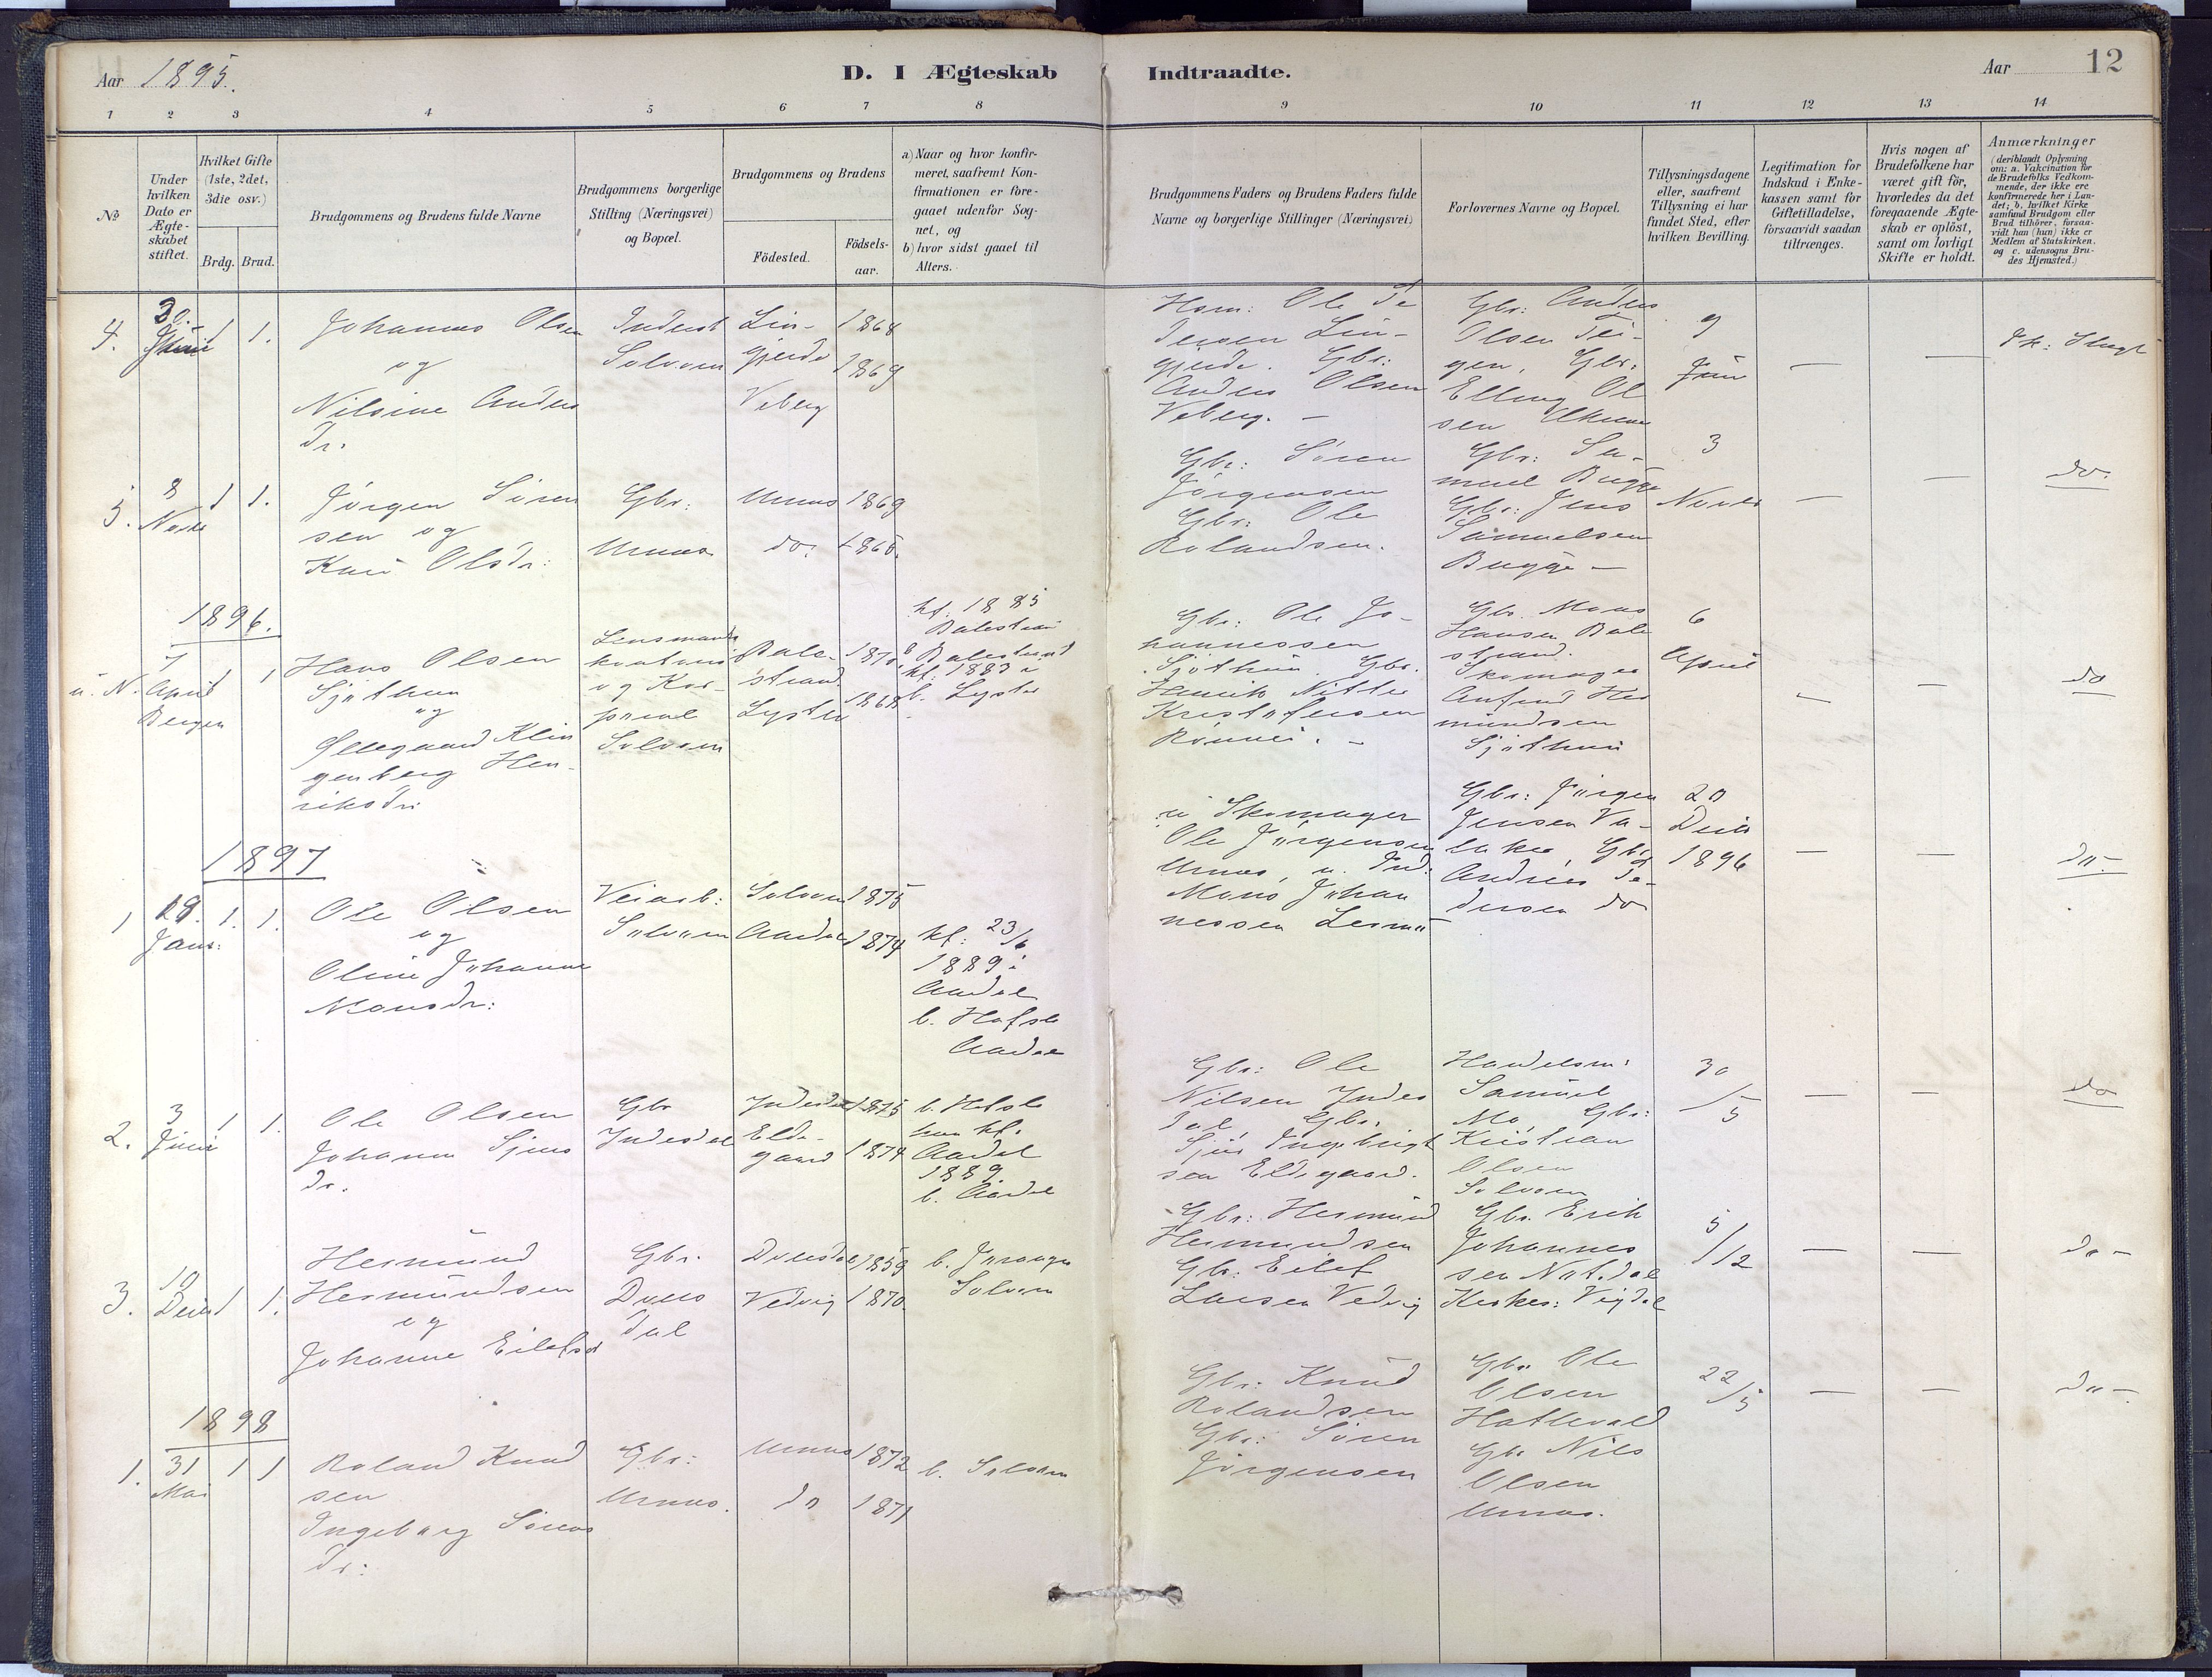 Aar 1895.
D. I Ægteskab
Indtraadte.
Aar
12
1 2 3 4 5 6 7 8 9 10 11 12 13 14
No
Under
hvilken
Dato er
Ægte-
skabet
stiftet.
Hvilket Gifte
(1ste, 2det,
3die osv.)
Brdg. Brud.
Brudgommens og Brudens fulde Navne
Brudgommens borgerlige
Stilling (Næringsvei)
og Bopæl.
Brudgommens og Brudens
Födested.
Födsels-
aar.
a) Naar og hvor konfir-
meret, saafremt Kon-
firmationen er fore-
gaaet udenfor Sog-
net, og
b) hvor sidst gaaet til
Alters.
Brudgommens Faders og Brudens Faders fulde
Navne og borgerlige Stillinger (Næringsvei)
Forlovernes Navne og Bopæl.
Tillysningsdagene
eller, saafremt
Tillysning ei har
fundet Sted, efter
hvilken Bevilling.
Legitimation for
Indskud i Enke-
kassen samt for
Giftetilladelse,
forsaavidt saadan
tiltrænges.
Hvis nogen af
Brudefolkene har
været gift för,
hvorledes da det
foregaaende Ægte-
skab er oplöst,
samt om lovligt
Skifte er holdt.
Anmærkninger
(deriblandt Oplysning
om: a. Vakcination for
de Brudefolks Vedkom-
mende, der ikke ere
konfirmerede her i Lan-
det; b. hvilket Kirke
samfund Brudgom eller
Brud tilhörer, forsaa-
vidt han (hun) ikke er
Medlem af Statskirken.
og c. udensogns Bru-
des Hjemsted.)
4.
30.
Juni
1 1.
Johannes Olsen
og
Nilsine Anders
dr.
Inderst
Solvorn
Lin-
gjerde
Veberg
1868
1869
Hsm: Ole Pe
dersen Lin-
gjerde. Gbr:
Anders Olsen
Veberg. —
Gbr: Anders
Olsen Tei-
gen, Gbr:
Elling Ol
sen
9
Juni
— —
5.
8
Novb
1 1.
Jörgen Sören
sen og
Kari Olsdr:
Gbr:
Urnes
Urnes
do.
1869
1865.
Gbr: Sören
Jörgensen
Gbr: Ole
Rolandsen.
Gbr: Sa-
muel Bugge
Gbr: Jens
Samuelsen
Bugge —
3
Novbr
— —
do.
1896.
u. N.
7
April
Bergen
1
Hans Olsen
Sjöthun
og
Øllegaard Klin
genberg Hen-
riksdr:
Lensmands
kontorist
og Kor-
poral
Solvorn
Bale-
strand
Lyster
1868
kf: 1885
Balestran
b Balestrand
kf: 1883 i
b. Lyster
Gbr: Ole Jo-
hannessen
Sjöthun Gbr.
Henrik Nitter
Kristofersen
Rönnei. —
Gbr. Mons
Hansen Bale
strand.
Skomager
Anfind Her
mundsen
Sjöthun
6
April
— —
do
1897
1
19.
Janr:
1. 1.
Ole Olsen
og
Oline Johanne
Monsdr:
Veiarb:
Solvorn
Solvorn
Aardal
1875
1874
kf: 23/6
1889 i
Aardal
b. Hafslo
Aardal
u Skomager
Ole Jörgensen
Urnes, u. Ind:
Mons Johan
nessen Lermo
Gbr: Jörgen
Jensen Va-
laker Gbr
Andreas Pe-
dersen do
20
Decbr
1896
— —
do —
2.
3
Juni
1 1.
Ole Olsen
Johanne Sjurs
dr.
Gbr
Indesdal
Indesdal
Elde-
gaard
1875
1874
b. Hafslo
hun kf.
Aardal
1889.
b. Aardal
Gbr: Ole
Nilsen Indes
dal, Gbr.
Sjur Ingebrigt
sen Eldegaard.
Handelsm:
Samuel
Mo, Gbr:
Kristian
Olsen
Solvorn
30
/5
— —
do
3.
10
Decbr
1 1.
Hermund
Hermundsen
og
Johanne Eilefsd
Gbr.
Dves
dal
Vedvig
1859
1870
Solvorn
Gbr: Hermund
Hermundsen
Gbr: Eilef
Larsen Vedvig
Gbr. Erik
Johannes
sen
Kirkes: Vigdal
5
/12
— —
do —
1898
1.
31
Mai
1 1
Roland Knud
sen
Ingeborg Sörens
dr:
Gbr:
Urnes.
Urnes
do
1872
1871
b. Solvorn
Gbr: Knud
Rolandsen
Gbr: Sören
Jörgensen
Gbr: Ole
Olsen
Hatlevold
Gbr Nils
Olsen
Urnes.
22
/5
— —
do —